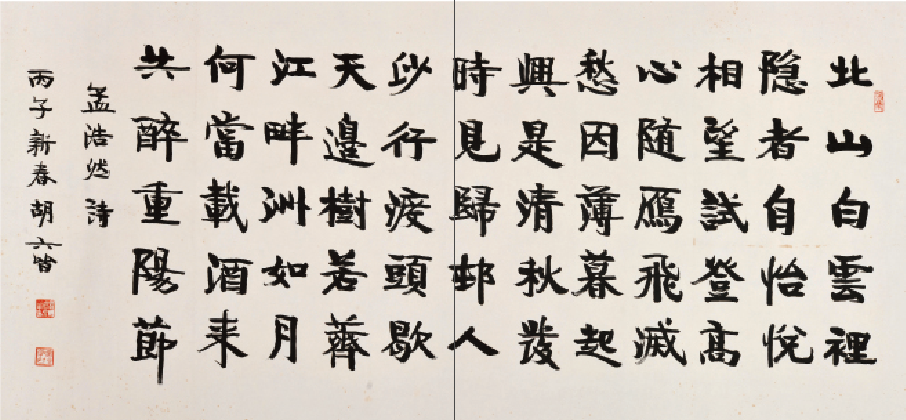 北山白雲裡
隐者自怡悅
相望試登高
心随鴈飛滅
愁因薄暮起
興是清秋發
時見歸邨人
沙行渡頭歇
天邊樹若薺
江畔洲如月
何當載酒来
共醉重陽節
孟浩然詩
丙子新春胡六皆